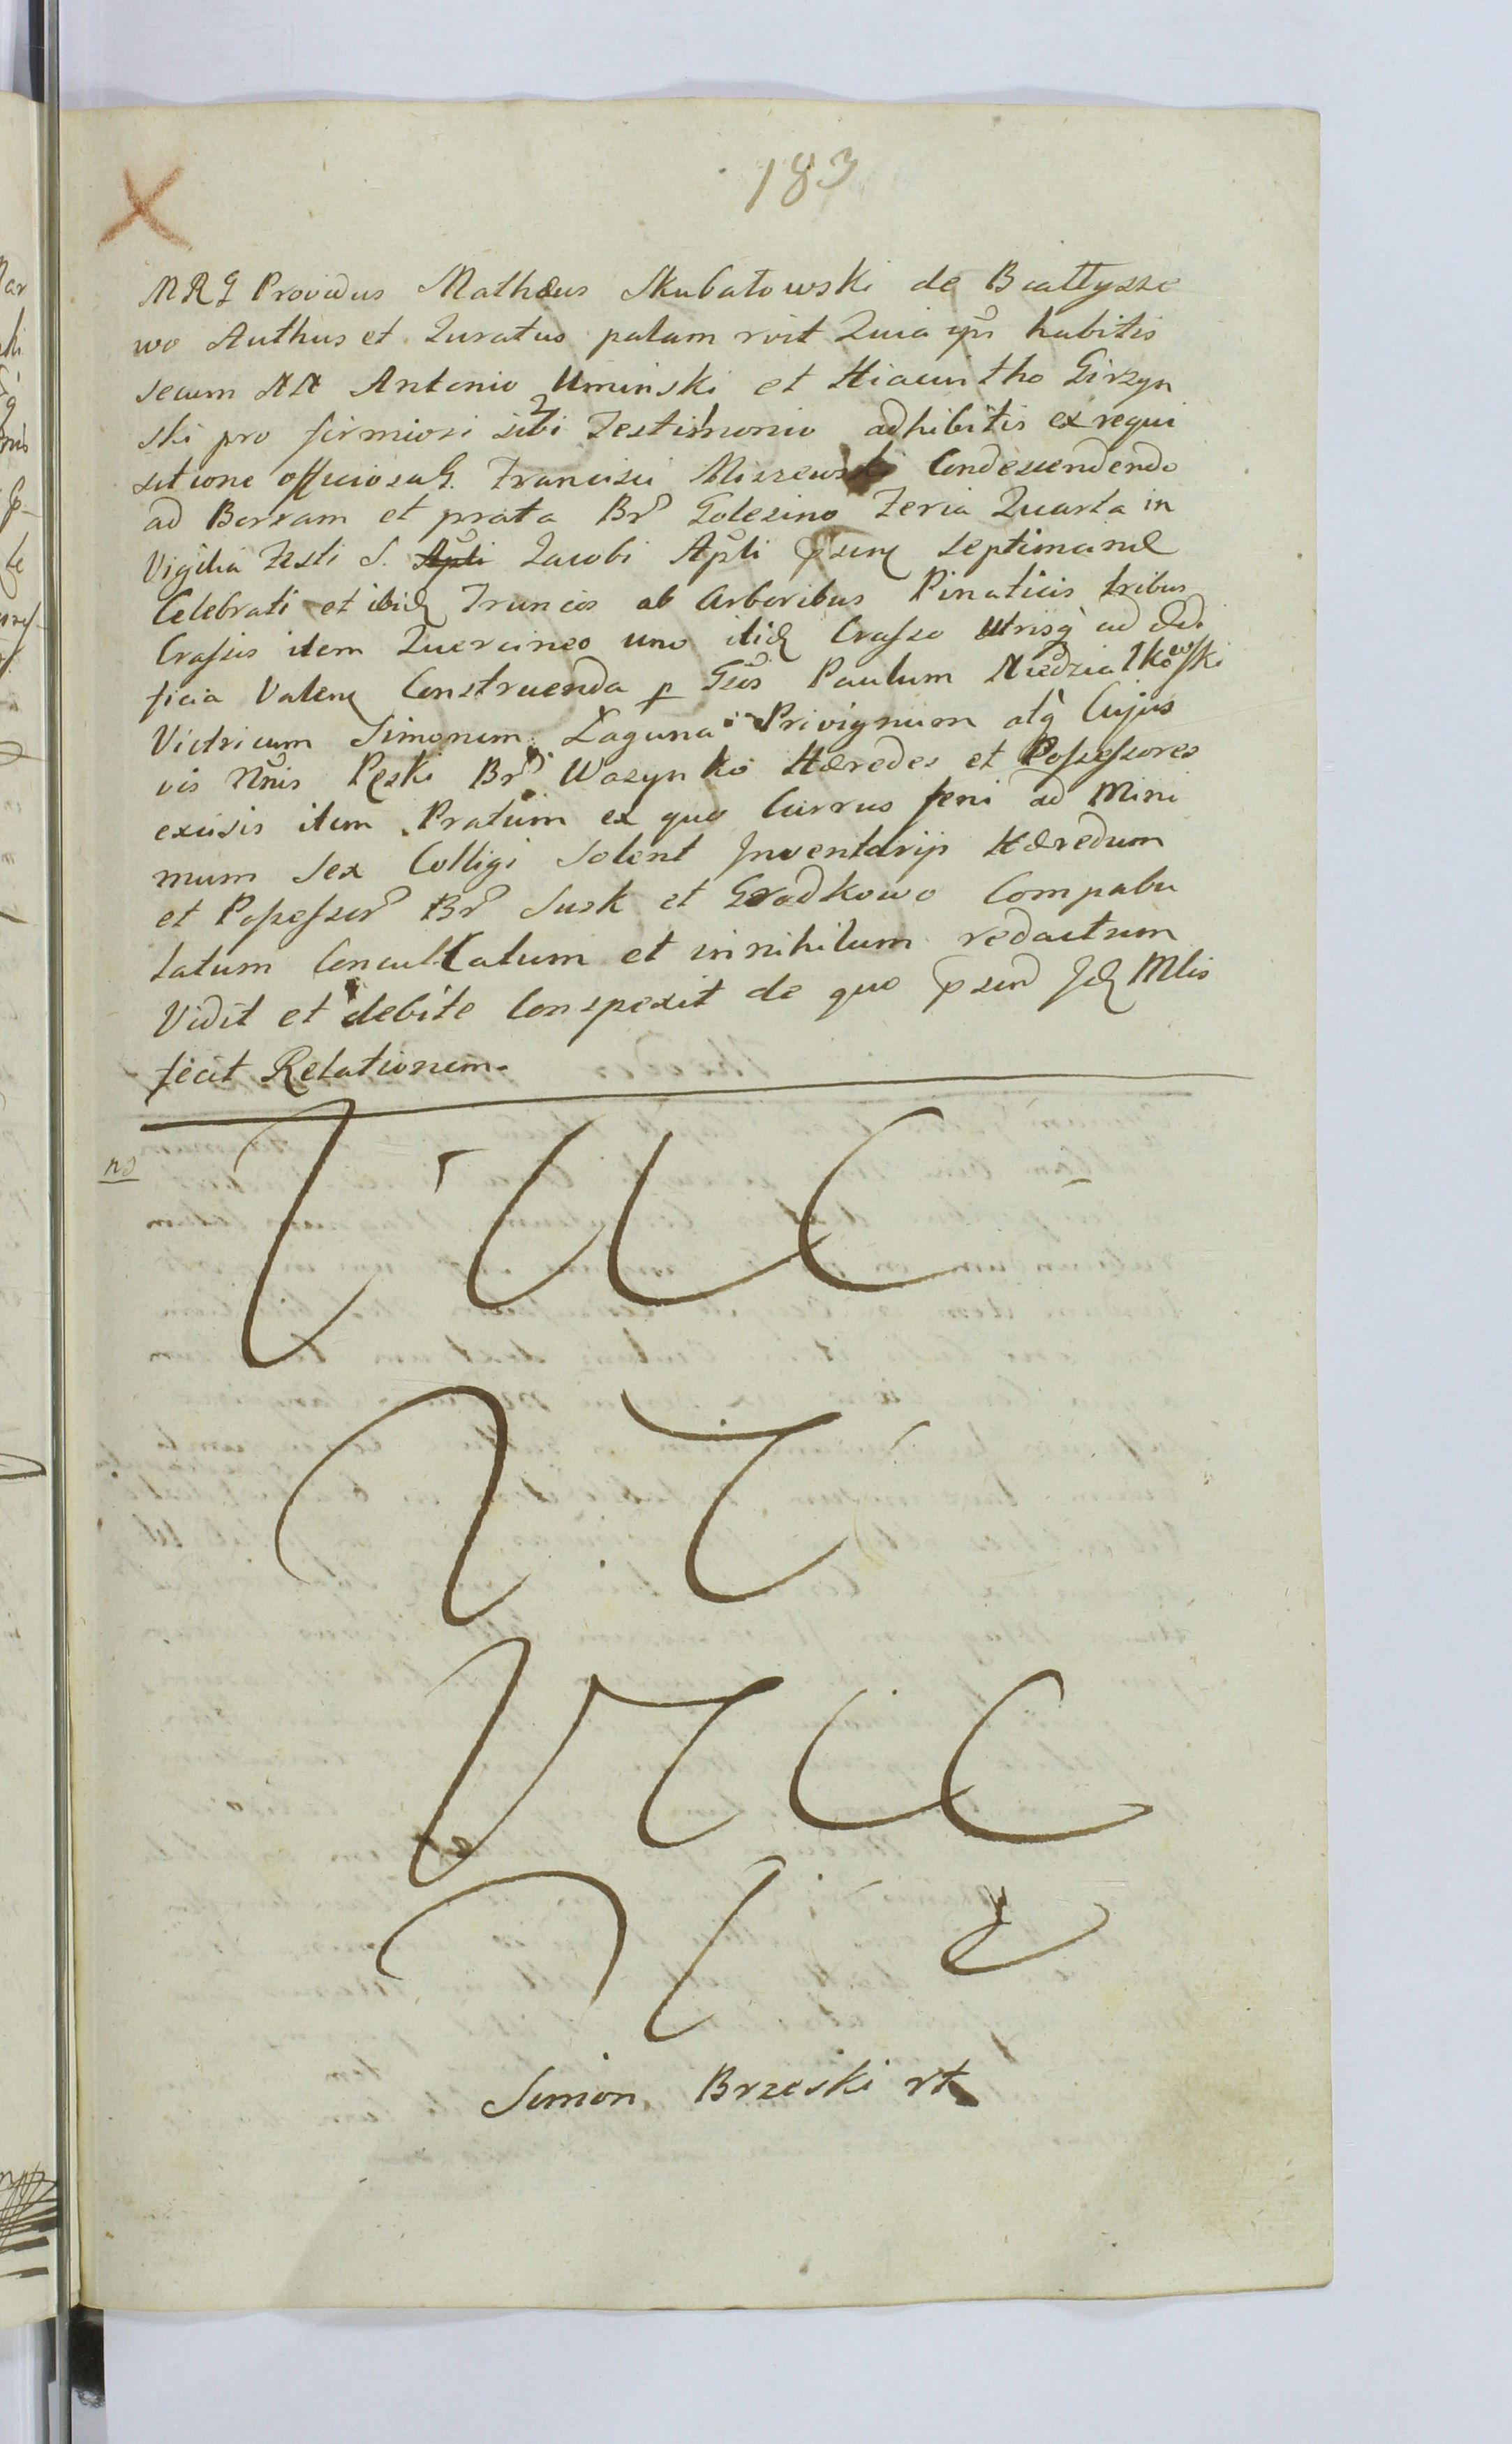 183
MRG Providus Mathæus Skubatowski de Biattysze
wo Authus et Juratus palam rvit Quia ips habitis
secum NN Antonio Uminski et Hiacintho Girzyn
ski pro firmiori sibi Testimonio adhibitis ex requi
sitione officiosa G. Francisci Miszewski Condescendendo
ad Borram et prata Br Golesino Feria Quarta in
Vigilia Festi S. Apli Jacobi Apli psen Septimanæ
Celebrati et ibid Truncos ab Arboribus Pinaticis tribus
Crassis item Quercineo uno itid Crasso utrisq ad Ædi
ficia Valen Construenda p Gsos Paulum Niedzialkowski
Victricum Simonem Łaguna Privignum atq Cujus
vis Nnis Pęski Br Wazynko Hæredes et Possessores
excisis item Pratum ex quo Currus feni ad Mini
mum Sex Colligi Solent Inventarijs Hæredum
et Possessor Br Susk et Gradkowo Compabu
latum Conculcatum et in nihilum redactum
Vidit et debite Conspexit de quo psend Jd Mlis
fecit Relationem.
Simon Brzeski